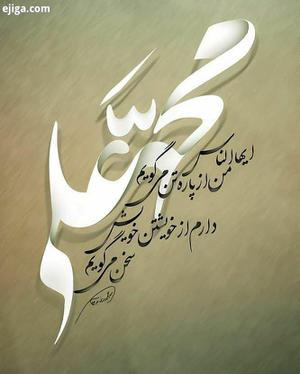 ejiga.com
محمد
علی
ایها الناس
من از پاره تن می گویم
دارم از خویشتن خویش
سخن می گویم